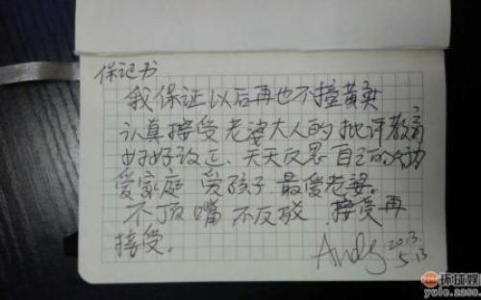 保证书
我保证以后再也不撞黄奕
认真接受老婆大人的批评教育
好好改正、天天反思自己的行动
爱家庭 爱孩子 最爱老婆。
不顶嘴 不反驳 接受再
接受。
Andy 2013.
5.13
环球娱